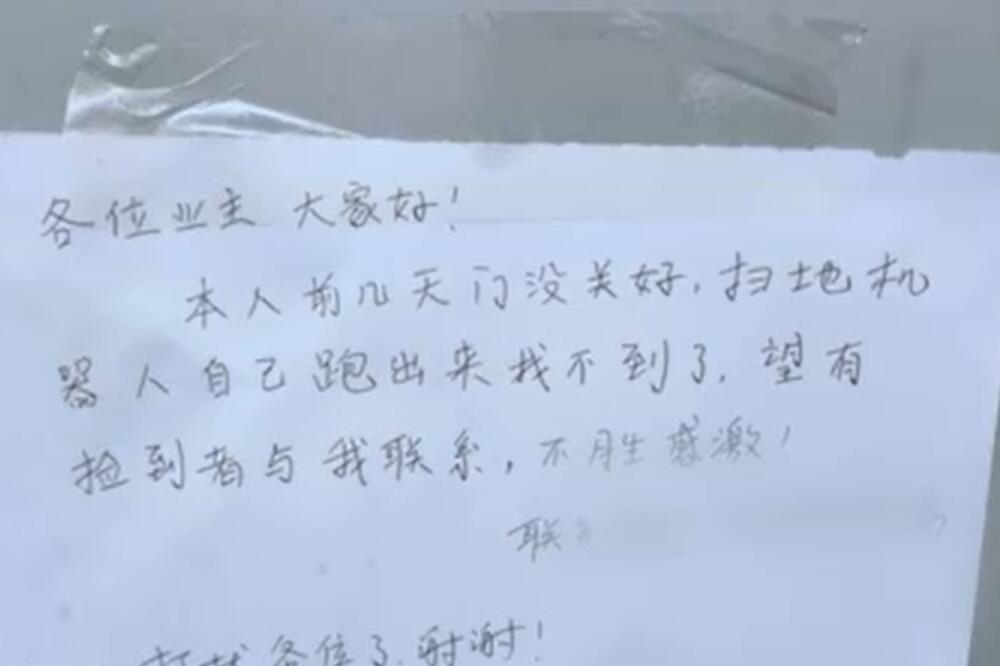 各位业主 大家好!
本人前几天门没关好,扫地机
器人自己跑出来找不到了,望有
捡到者与我联系,不胜感激!
联
打扰各位了,谢谢!